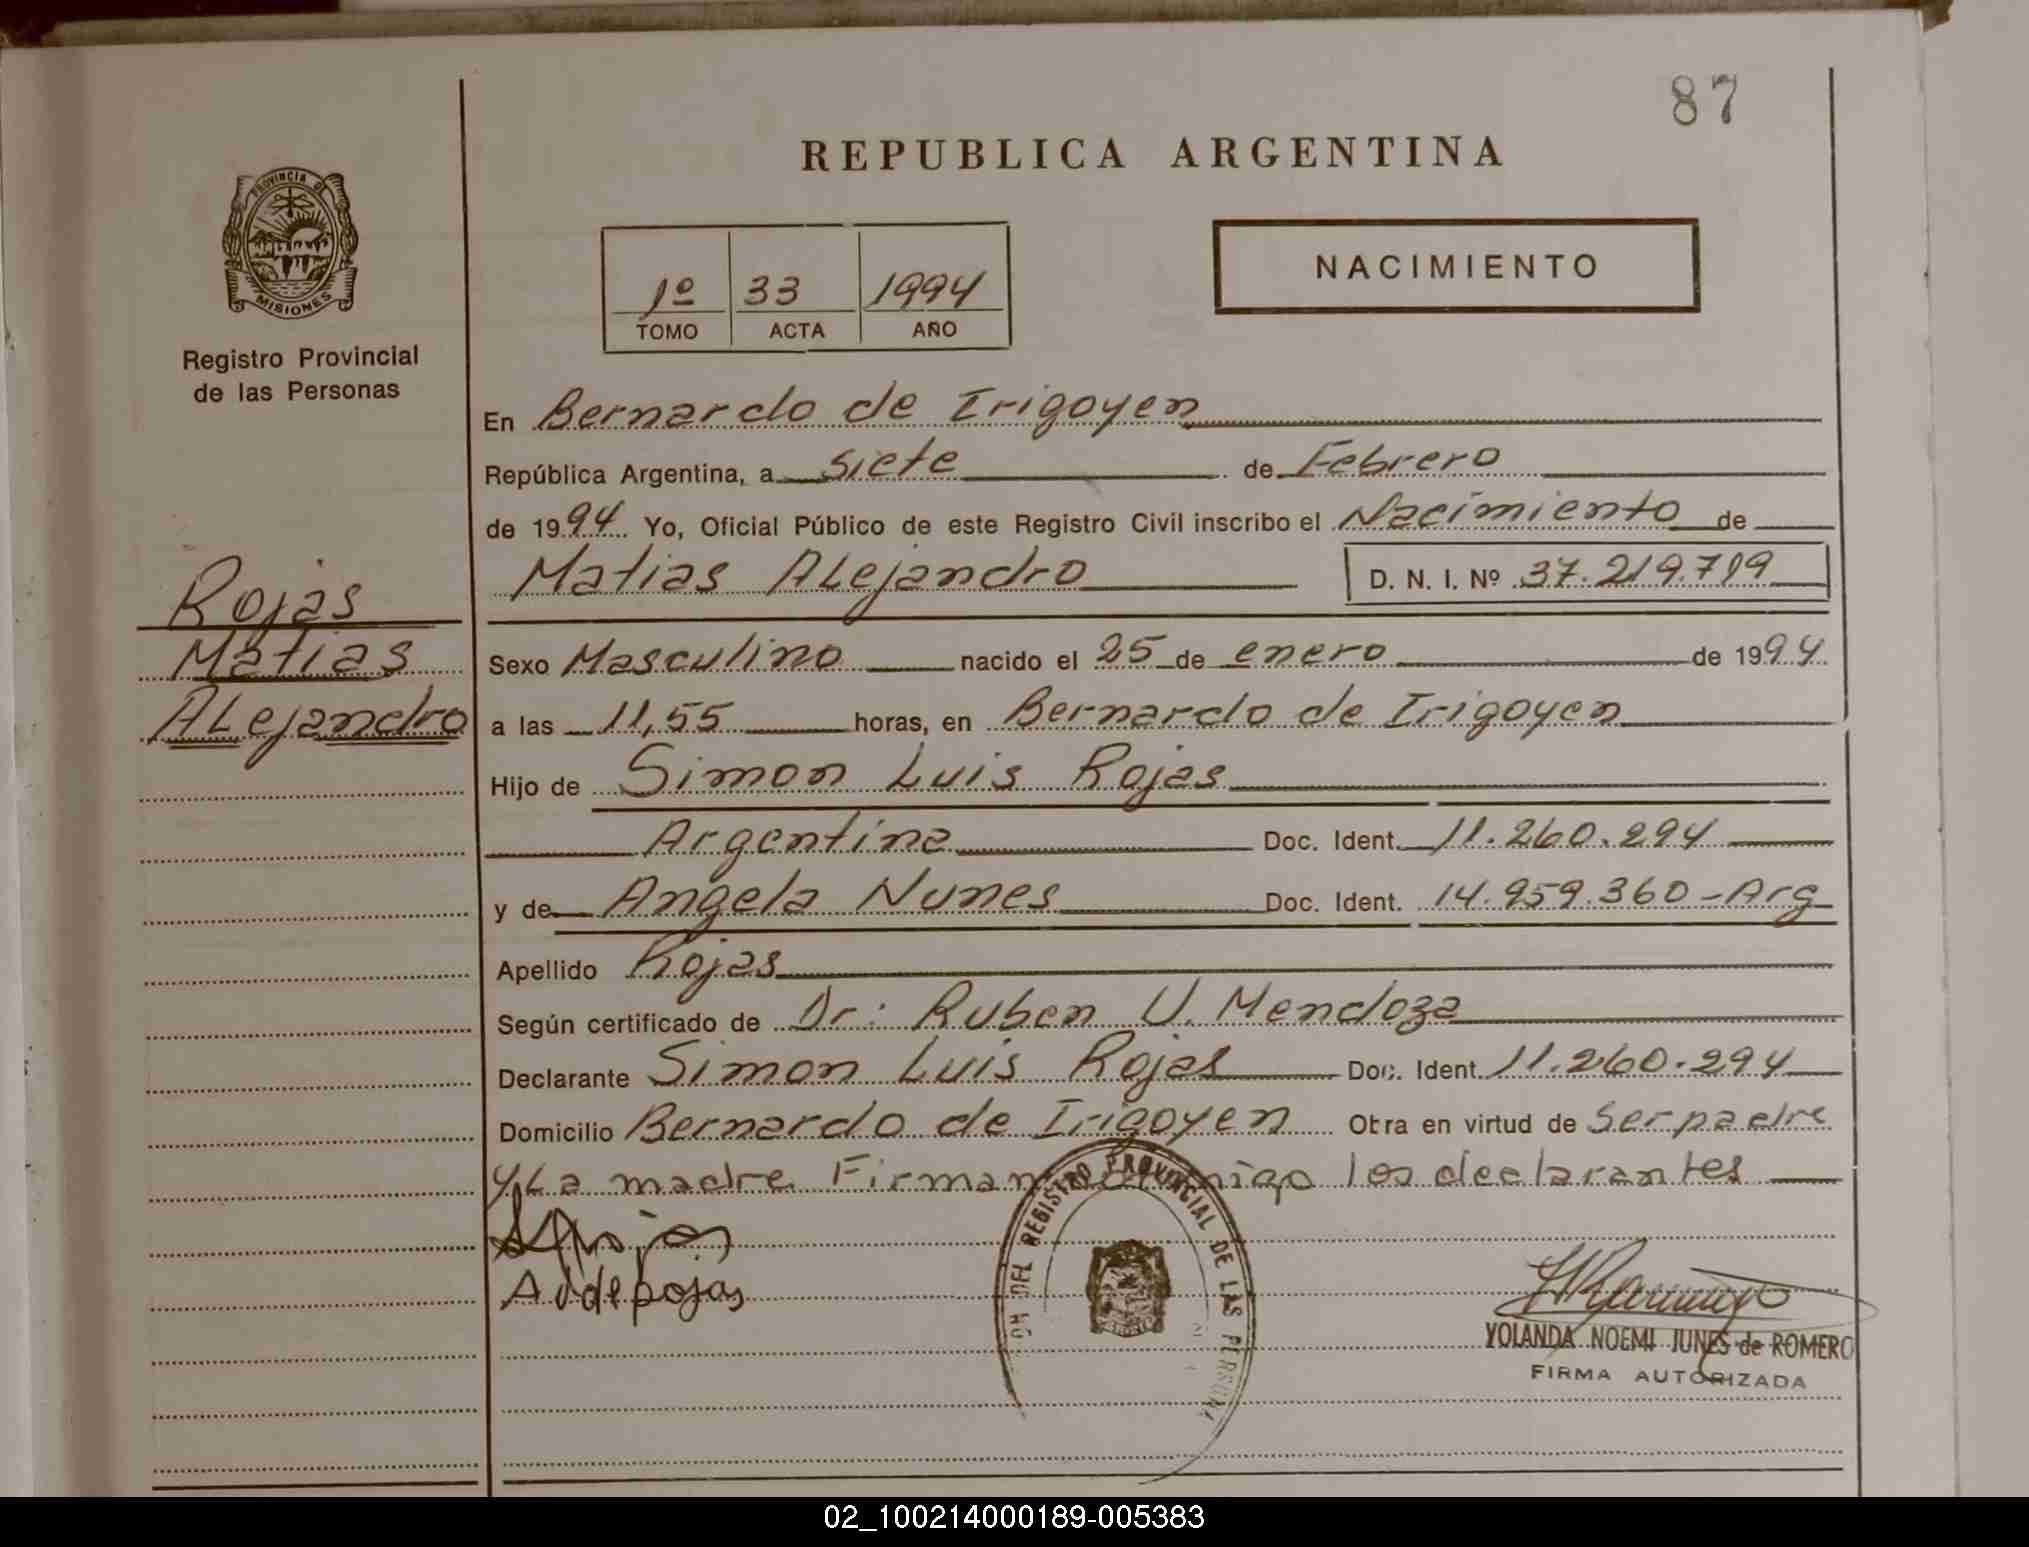 87
REPUBLICA ARGENTINA
PROVINCIA DE
MISIONES
Registro Provincial
de las Personas
1º 33 1994
TOMO ACTA AÑO
NACIMIENTO
En Bernardo de Irigoyen
República Argentina, a siete de Febrero
de 1994 Yo, Oficial Público de este Registro Civil inscribo el Nacimiento de
Matias ALejandro D. N. I. Nº 37.219.719
Rojas
Matias
ALejandro
Sexo Masculino nacido el 25 de enero de 1994
a las 11,55 horas, en Bernardo de Irigoyen
Hijo de Simon Luis Rojas
Argentina Doc. Ident. 11.260.294
y de Angela Nunes Doc. Ident. 14.959.360 - Arg
Apellido Rojas
Según certificado de Dr: Ruben U. Mendoza
Declarante Simon Luis Rojas Doc. Ident. 11.260.294
Domicilio Bernardo de Irigoyen Obra en virtud de Ser padre
y La madre Firman conmigo los declarantes
DEL REGISTRO PROVINCIAL DE LAS PERSONAS
YOLANDA NOEMI JUNES de ROMERO
FIRMA AUTORIZADA
02_100214000189-005383